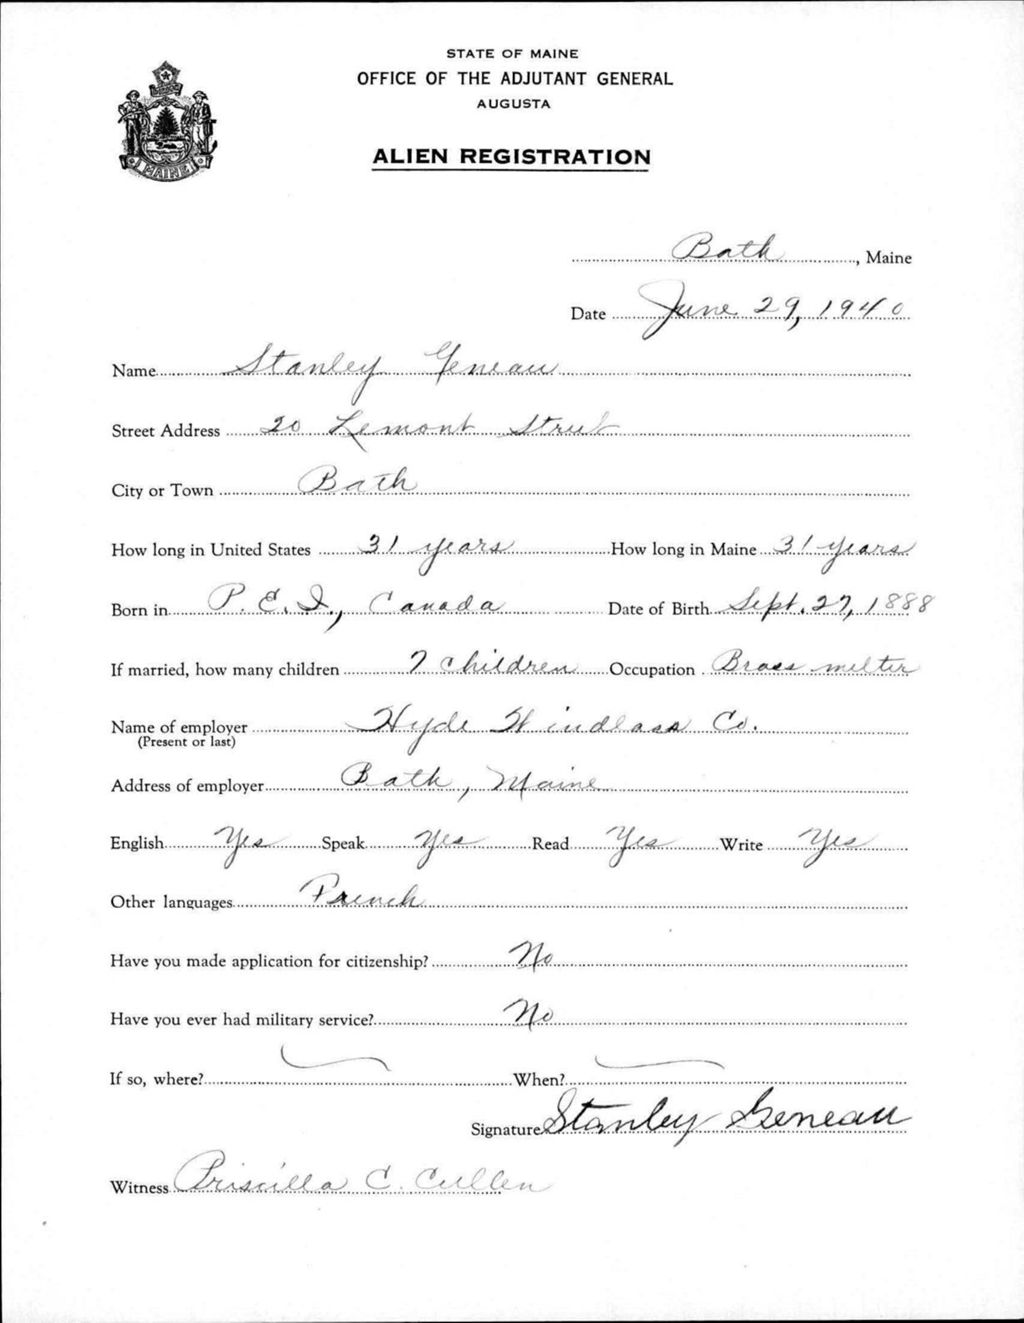 STATE OF MAINE
OFFICE OF THE ADJUTANT GENERAL
AUGUSTA
ALIEN REGISTRATION
MAINE
Bath, Maine
Date June 29, 1940
Name Stanley Geneau
Street Address 20 Lemont Street
City or Town Bath
How long in United States 31 years How long in Maine 31 years
Born in P. E. I., Canada Date of Birth Sept. 27, 1888
If married, how many children 7 children Occupation Brass melter
Name of employer Hyde Windlass Co.
(Present or last)
Address of employer Bath, Maine
English Yes Speak Yes Read Yes Write Yes
Other languages French
Have you made application for citizenship? No
Have you ever had military service? No
If so, where? When?
Signature Stanley Geneau
Witness Priscilla C. Cullen